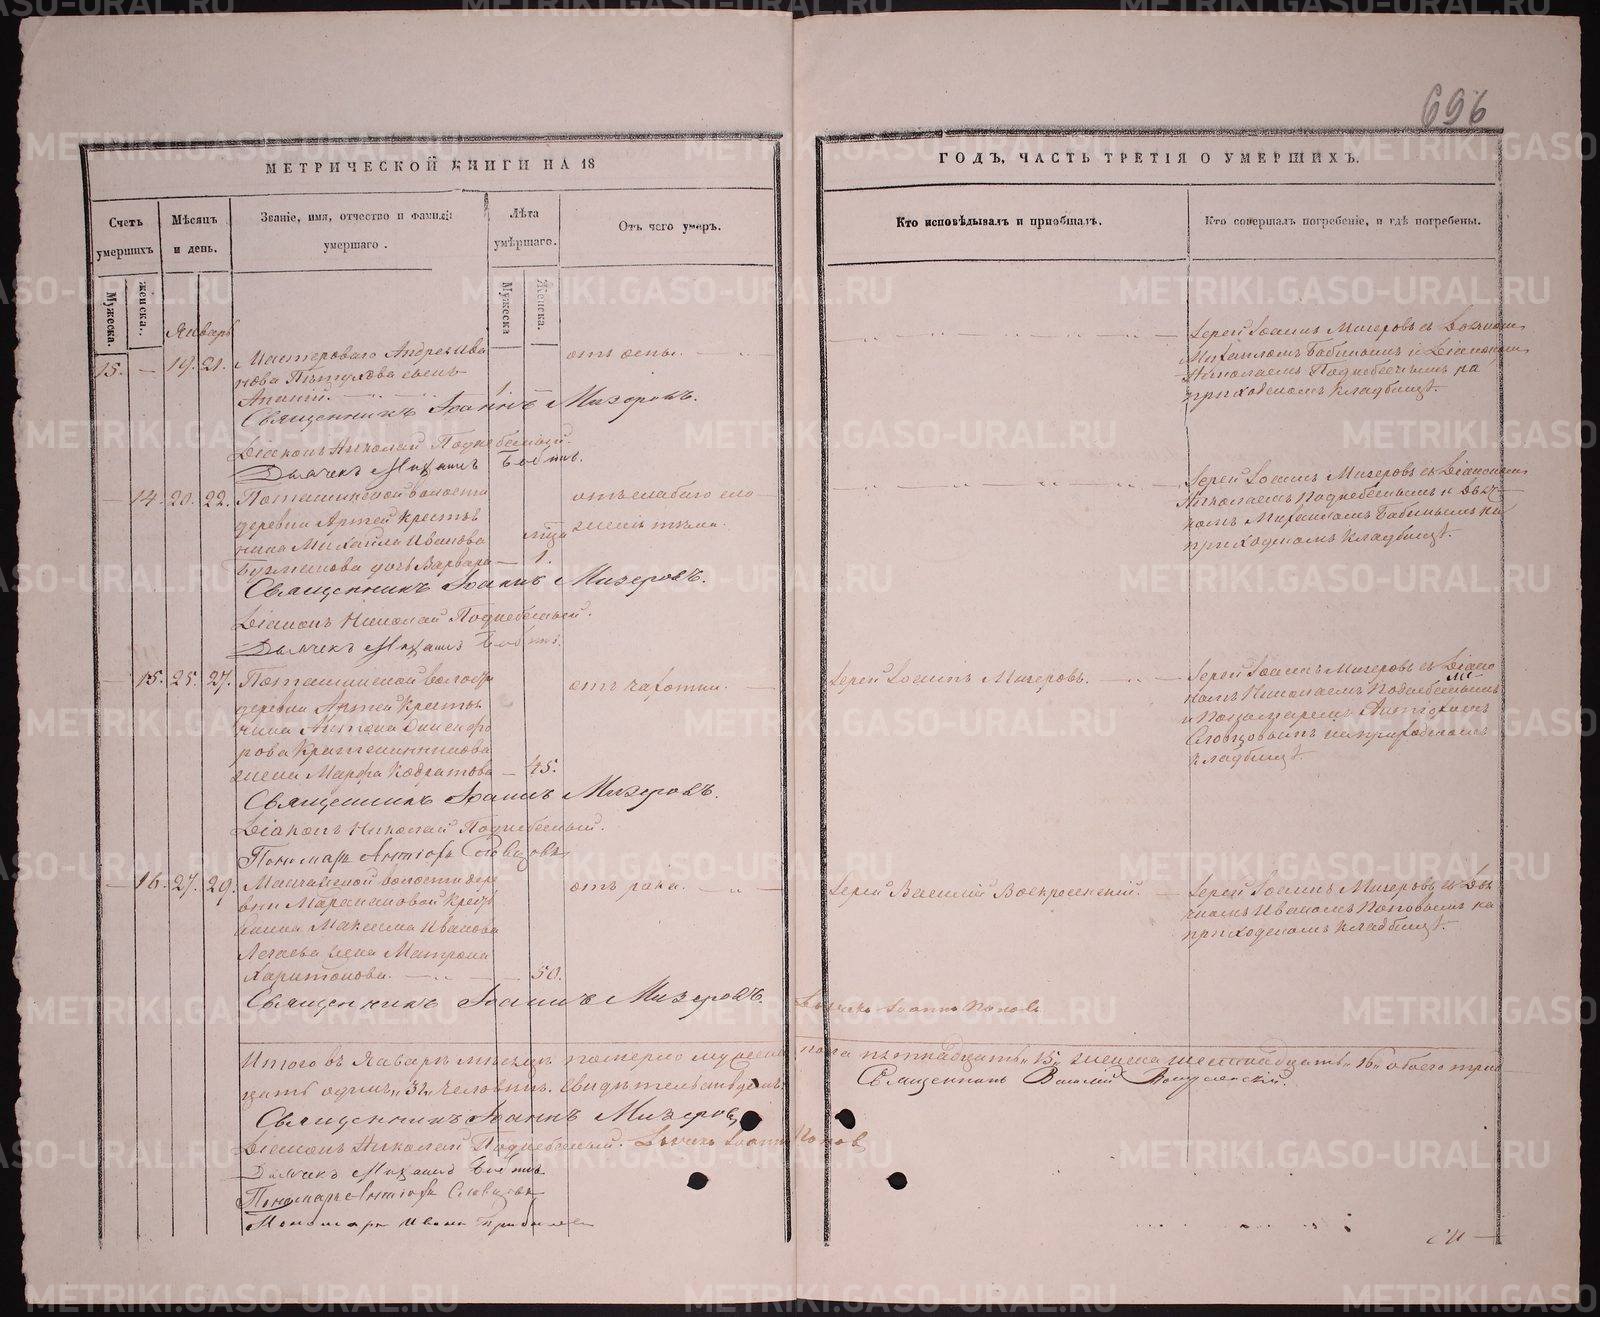 696
МЕТРИЧЕСКОЙ КНИГИ НА 18
ГОДЪ, ЧАСТЬ ТРЕТІЯ О УМЕРШИХЪ.
Счетъ умершихъ
Мѣсяцъ и день.
Званіе, имя, отчество и фамилія умершаго.
Лѣта умершаго.
Отъ чего умеръ.
Кто исповѣдывалъ и пріобщалъ.
Кто совершалъ погребеніе, и гдѣ погребены.
Мужеска.
женска.
Мужеска
Женска.
Январь
15. — 19. 21. Мастероваго Андрея Ива
нова Пѣтухова сынъ
1.
отъ оспы.
Іерей Іоаннъ Мизеровъ съ Дьячкомъ
Михаиломъ Бабинымъ и Діакономъ
Николаемъ Поднебеснымъ на
приходскомъ кладбищѣ.
Священникъ Іоаннъ Мизеровъ.
Діаконъ Николай Поднебесный.
Дьячекъ Михаилъ Бабинъ.
— 14. 20. 22. Поташинской волости
деревни Артей крестья
нина Михаила Иванова
дочь Варвара — 1.
отъ слабаго сло
женія тѣла.
Іерей Іоаннъ Мизеровъ съ Діакономъ
Николаемъ Поднебеснымъ и Дьяч-
комъ Михаиломъ Бабинымъ на
приходскомъ кладбищѣ.
Священникъ Іоаннъ Мизеровъ.
Діаконъ Николай Поднебесный.
Дьячекъ Михаилъ Бабинъ.
— 15. 25. 27. Поташинской волости
деревни Артей крестья
нина Антона
жена Марфа Кодратова — 45.
отъ чахотки.
Іерей Іоаннъ Мизеровъ.
Іерей Іоаннъ Мизеровъ съ Діако
номъ Николаемъ Поднебеснымъ
и Пономаремъ Антіохомъ
Словцовымъ на приходскомъ
кладбищѣ.
Священникъ Іоаннъ Мизеровъ.
Діаконъ Николай Поднебесный.
Пономарь Антіохъ Словцовъ
— 16. 27. 29. Манчажской волости дере
вни крестья
нина Максима Иванова
жена Матрона
Харитонова. 50.
отъ рака.
Іерей Василій Воскресенскій.
Іерей Іоаннъ Мизеровъ съ Дья
чкомъ Иваномъ Поповымъ на
приходскомъ кладбищѣ.
Священникъ Іоаннъ Мизеровъ.
Дьячекъ Іоаннъ Поповъ
Итого въ Январѣ мѣсяцѣ померло мужеска пола пятнадцать „15„ женска шестнадцать „16„ обоего трид
цать одинъ „31„ человѣкъ. Свидѣтельствуемъ:
Священникъ Василій Воскресенскій.
Священникъ Іоаннъ Мизеровъ
Діаконъ Николай Поднебесный. Дьячекъ Іоаннъ Поповъ
Дьячекъ Михаилъ Бабинъ
Пономарь Антіохъ Словцовъ
Пономарь Иванъ
METRIKI.GASO-URAL.RU